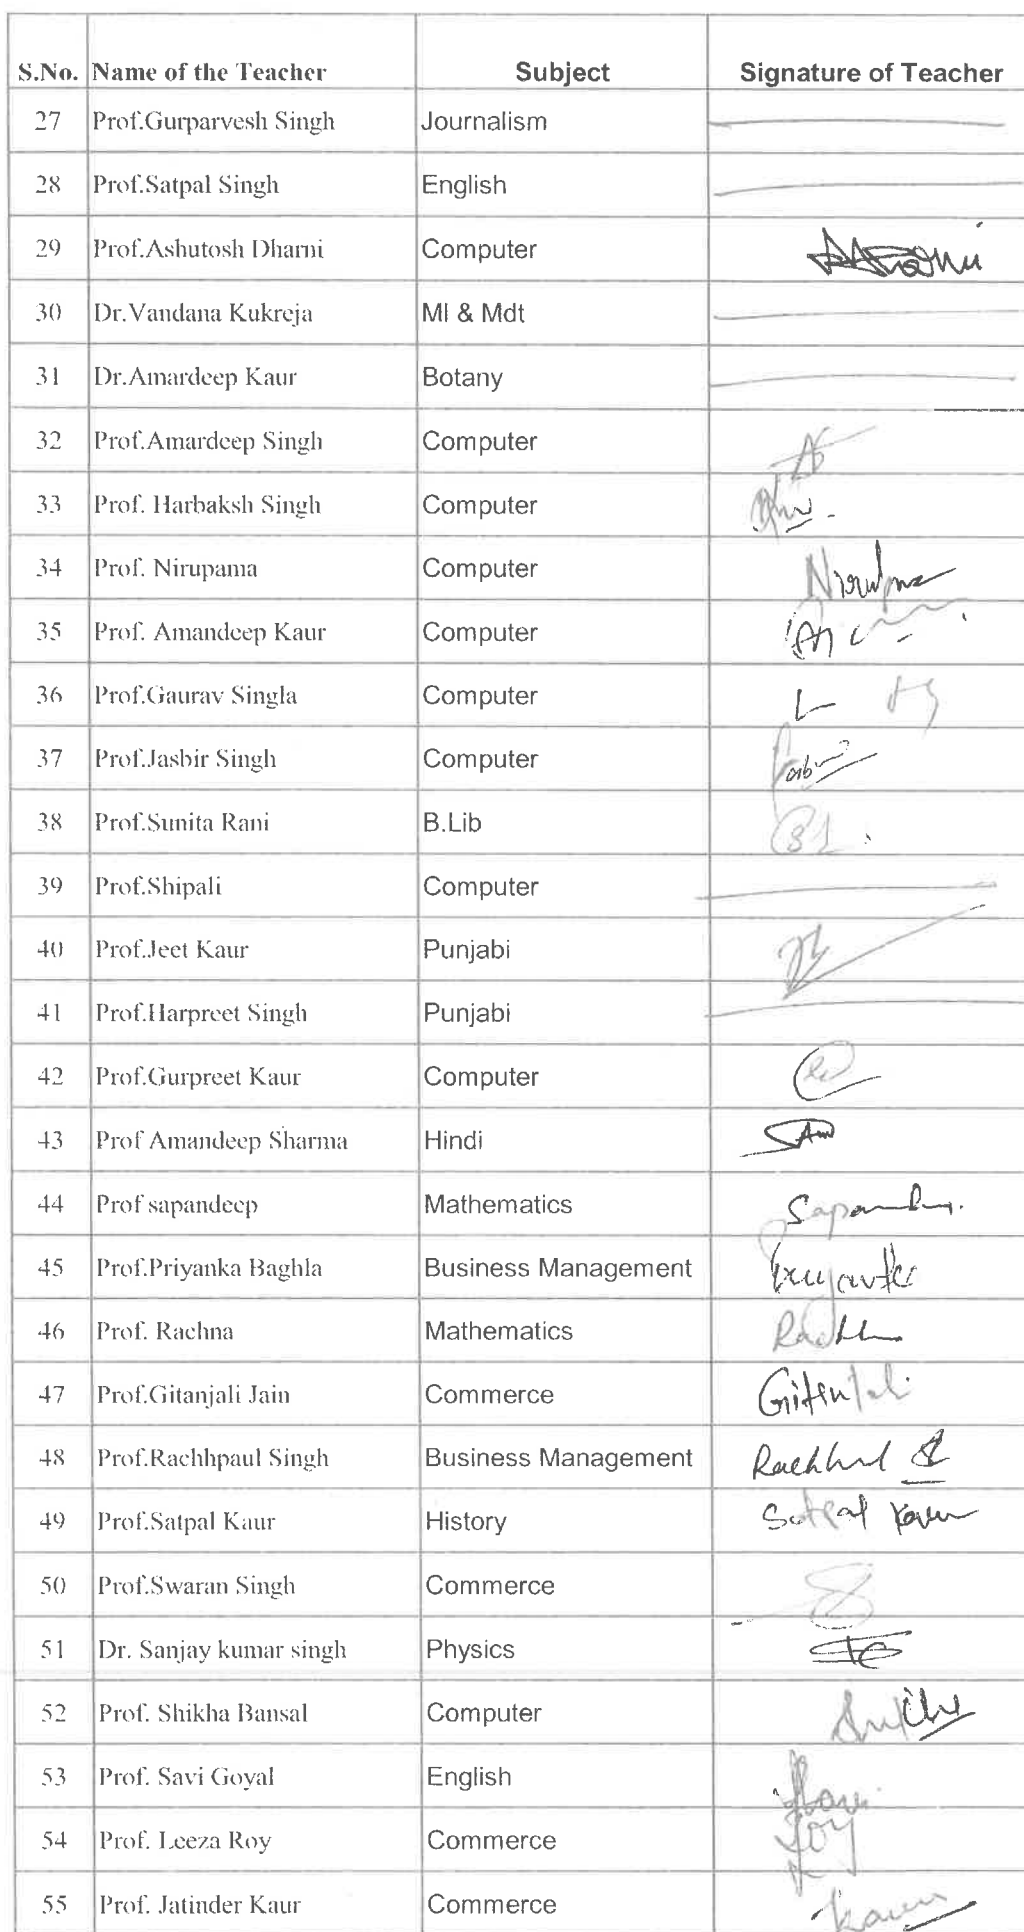 S.No. Name of the Teacher Subject Signature of Teacher
27 Prof.Gurparvesh Singh Journalism
28 Prof.Satpal Singh English
29 Prof.Ashutosh Dharni Computer
30 Dr.Vandana Kukreja MI & Mdt
31 Dr.Amardeep Kaur Botany
32 Prof.Amardeep Singh Computer
33 Prof. Harbaksh Singh Computer
34 Prof. Nirupama Computer
35 Prof. Amandeep Kaur Computer
36 Prof.Gaurav Singla Computer
37 Prof.Jasbir Singh Computer
38 Prof.Sunita Rani B.Lib
39 Prof.Shipali Computer
40 Prof.Jeet Kaur Punjabi
41 Prof.Harpreet Singh Punjabi
42 Prof.Gurpreet Kaur Computer
43 Prof Amandeep Sharma Hindi
44 Prof sapandeep Mathematics
45 Prof.Priyanka Baghla Business Management
46 Prof. Rachna Mathematics
47 Prof.Gitanjali Jain Commerce
48 Prof.Rachhpaul Singh Business Management
49 Prof.Satpal Kaur History Satpal Kaur
50 Prof.Swaran Singh Commerce
51 Dr. Sanjay kumar singh Physics
52 Prof. Shikha Bansal Computer
53 Prof. Savi Goyal English
54 Prof. Leeza Roy Commerce
55 Prof. Jatinder Kaur Commerce